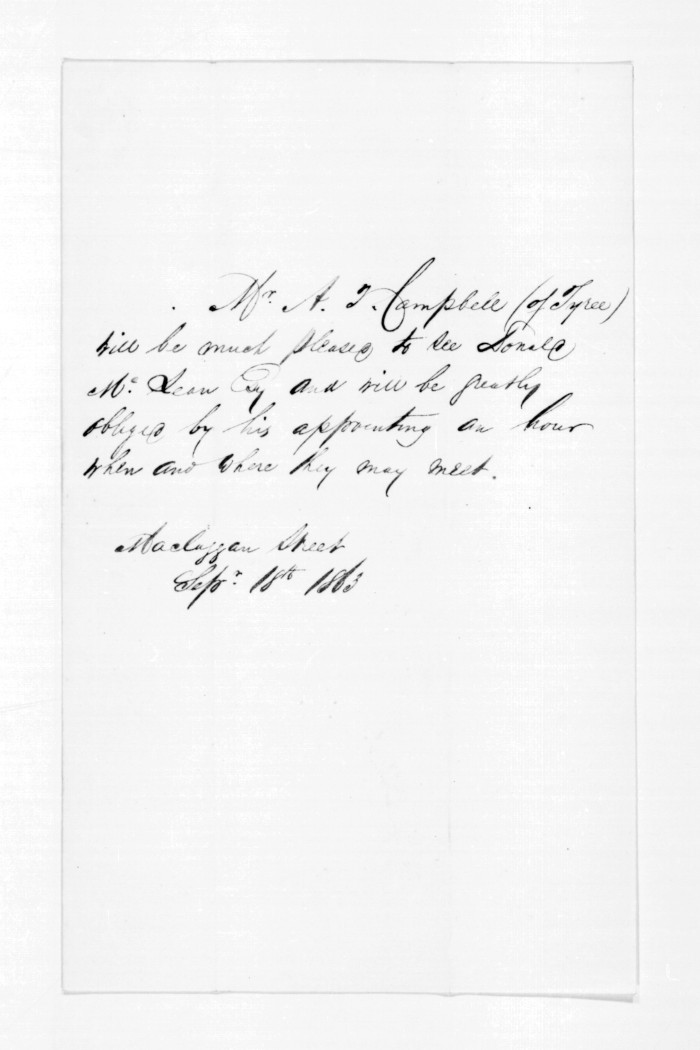 Mr. A. J. Campbell (of Tyree)
will be much pleased to see Donald
Mc. Lean Esq and will be greatly
obliged by his appointing an hour
when and where they may meet.
Maclaggan Street
Sepr. 18th 1863